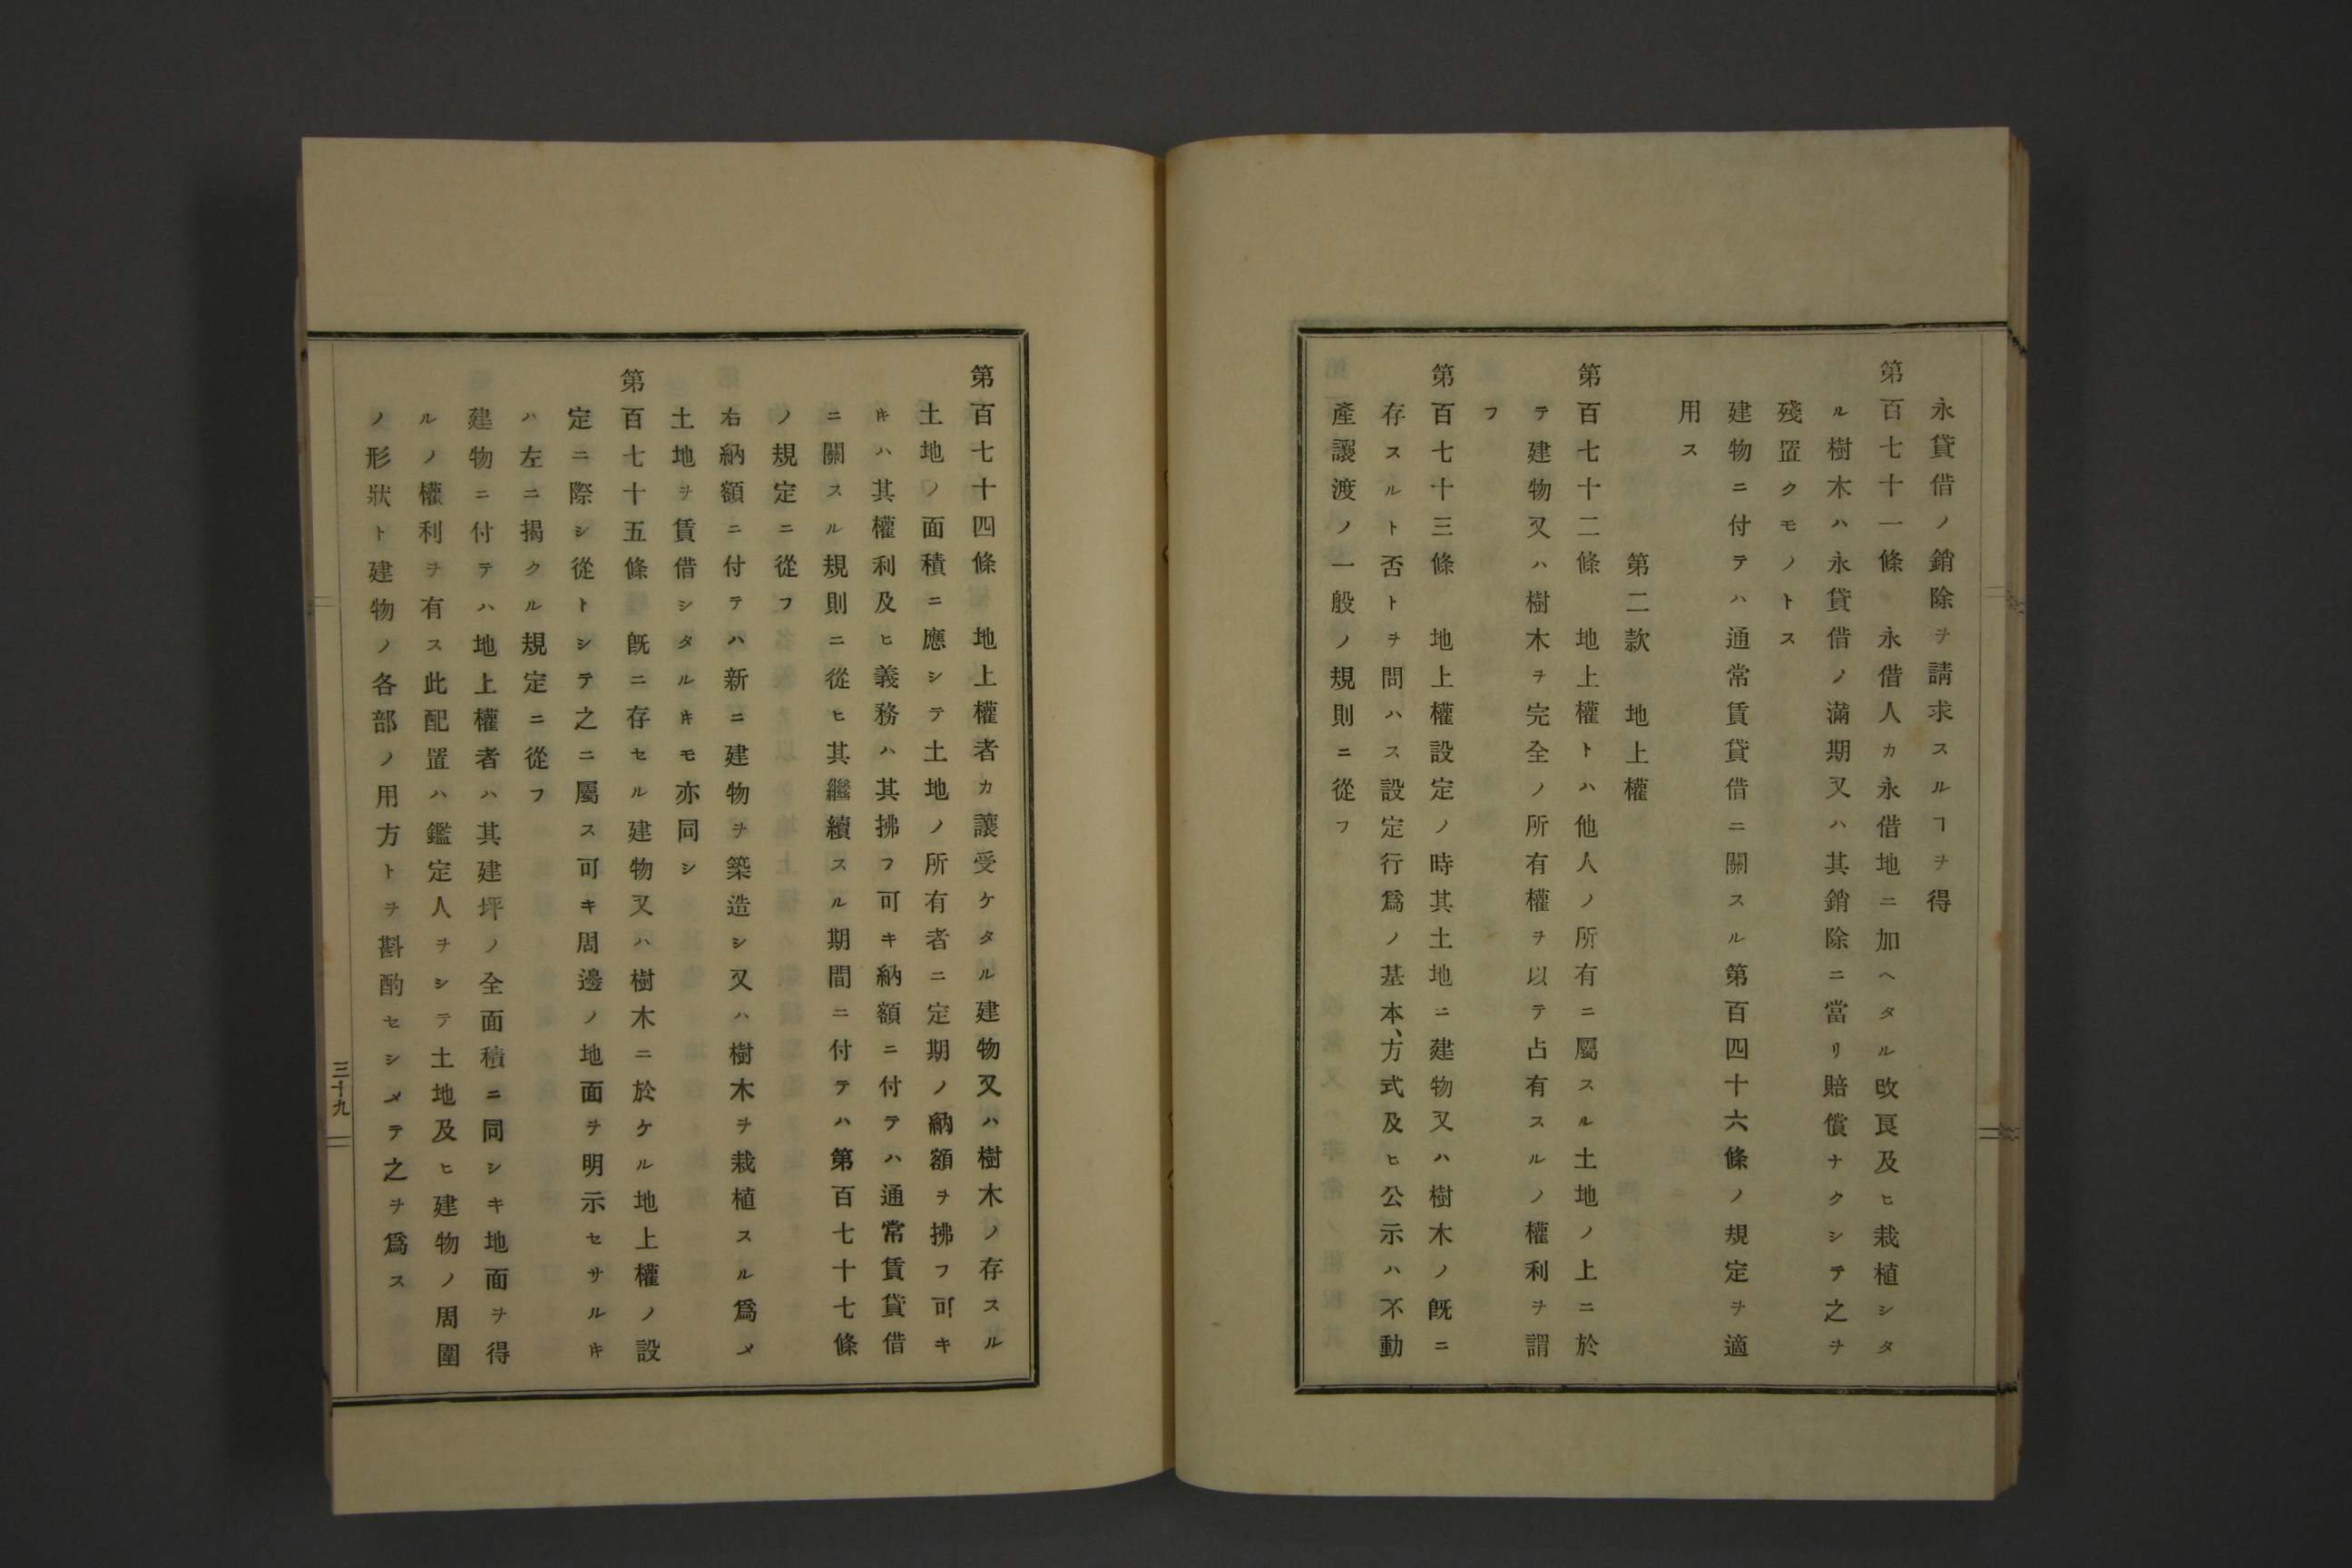 永貸借ノ銷除ヲ請求スルヿヲ得
第百七十一條　永借人カ永借地ニ加ヘタル改良及ヒ栽植シタ
ル樹木ハ永貸借ノ滿期又ハ其銷除ニ當リ賠償ナクシテ之ヲ
殘置クモノトス
建物ニ付テハ通常賃貸借ニ關スル第百四十六條ノ規定ヲ適
用ス
第二款　地上權
第百七十二條　地上權トハ他人ノ所有ニ屬スル土地ノ上ニ於
テ建物又ハ樹木ヲ完全ノ所有權ヲ以テ占有スルノ權利ヲ謂
フ
第百七十三條　地上權設定ノ時其土地ニ建物又ハ樹木ノ既ニ
存スルト否トヲ問ハス設定行爲ノ基本、方式及ヒ公示ハ不動
產讓渡ノ一般ノ規則ニ從フ
第百七十四條　地上權者カ讓受ケタル建物又ハ樹木ノ存スル
土地ノ面積ニ應シテ土地ノ所有者ニ定期ノ納額ヲ拂フ可キ
キハ其權利及ヒ義務ハ其拂フ可キ納額ニ付テハ通常賃貸借
ニ關スル規則ニ從ヒ其繼續スル期間ニ付テハ第百七十七條
ノ規定ニ從フ
右納額ニ付テハ新ニ建物ヲ築造シ又ハ樹木ヲ栽植スル爲メ
土地ヲ賃借シタルキモ亦同シ
第百七十五條　既ニ存セル建物又ハ樹木ニ於ケル地上權ノ設
定ニ際シ從トシテ之ニ屬ス可キ周邊ノ地面ヲ明示セサルキ
ハ左ニ揭クル規定ニ從フ
建物ニ付テハ地上權者ハ其建坪ノ全面積ニ同シキ地面ヲ得
ルノ權利ヲ有ス此配置ハ鑑定人ヲシテ土地及ヒ建物ノ周圍
ノ形狀ト建物ノ各部ノ用方トヲ斟酌セシメテ之ヲ爲ス
三十九